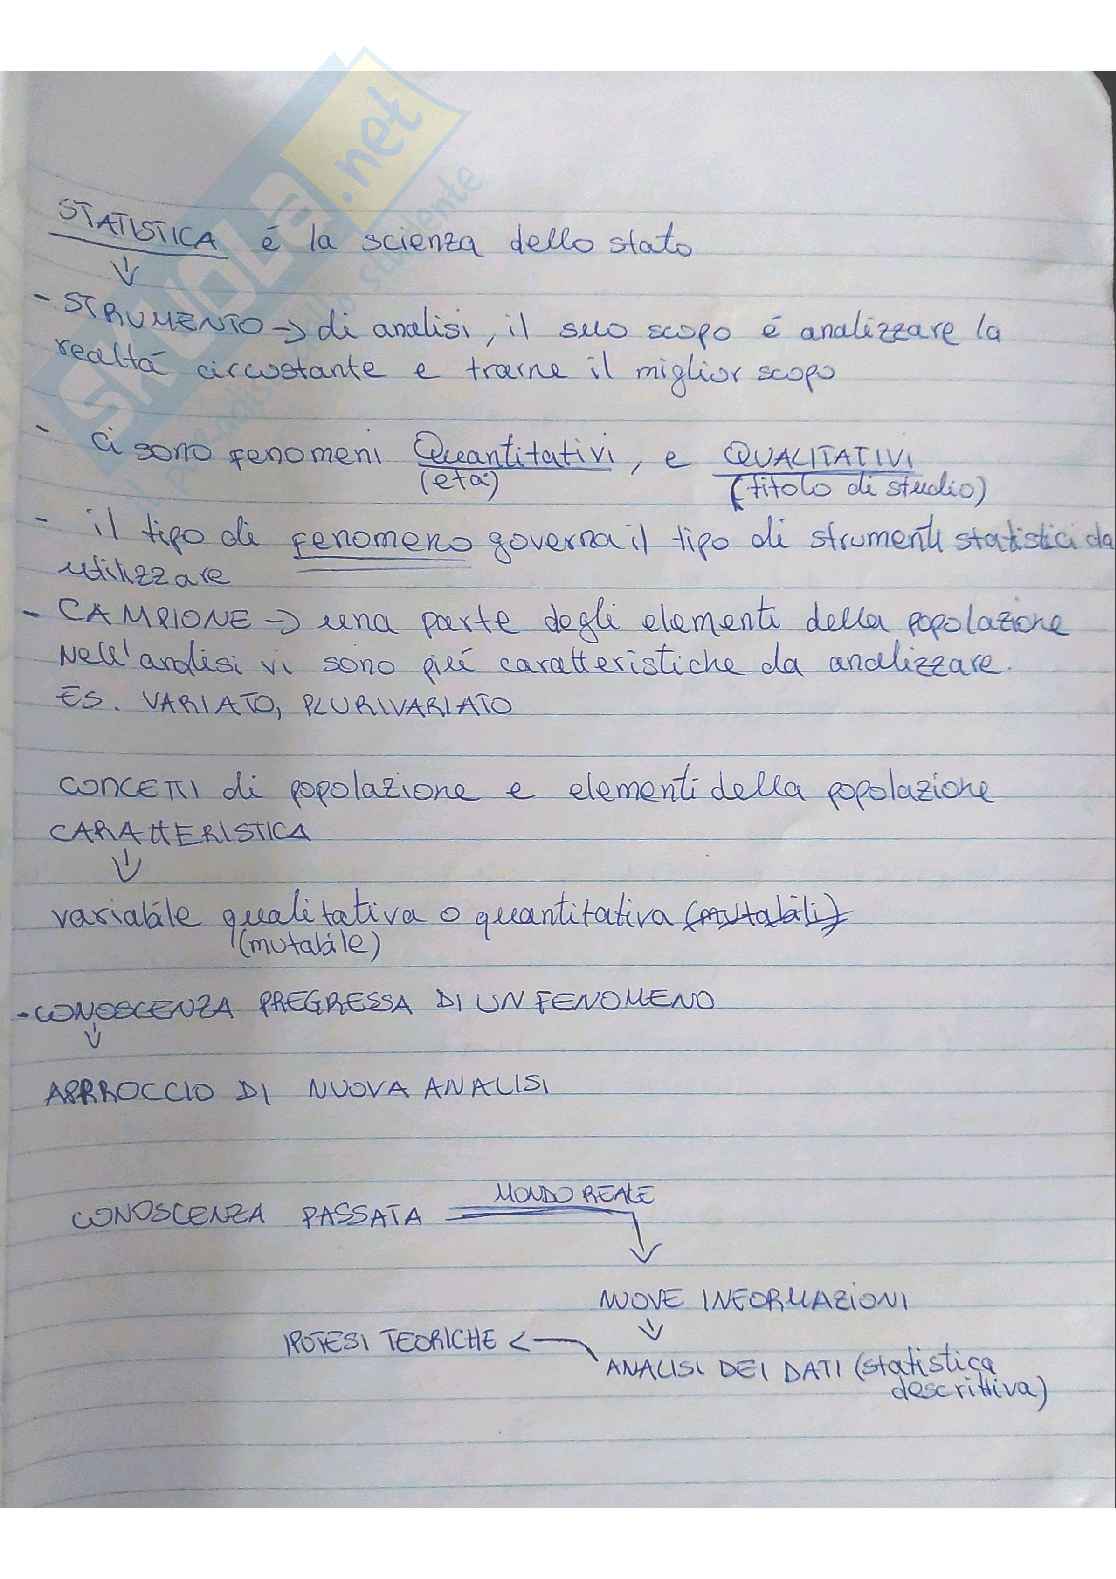 SKUOLA.net
STATISTICA é la scienza dello stato
- STRUMENTO -> di analisi, il suo scopo é analizzare la
realtá circostante e trarne il miglior scopo
- ci sono fenomeni Quantitativi, e QUALITATIVI
(etá) (titolo di studio)
- il tipo di fenomeno governa il tipo di strumenti statistici da
utilizzare
- CAMPIONE -> una parte degli elementi della popolazione
Nell'analisi vi sono piú caratteristiche da analizzare.
ES. VARIATO, PLURIVARIATO
CONCETTI di popolazione e elementi della popolazione
CARATTERISTICA
variabile qualitativa o quantitativa (mutabili)
(mutabile)
- CONOSCENZA PREGRESSA DI UN FENOMENO
APPROCCIO DI NUOVA ANALISI
MONDO REALE
CONOSCENZA PASSATA
NUOVE INFORMAZIONI
IPOTESI TEORICHE <-
ANALISI DEI DATI (statistica
descrittiva)